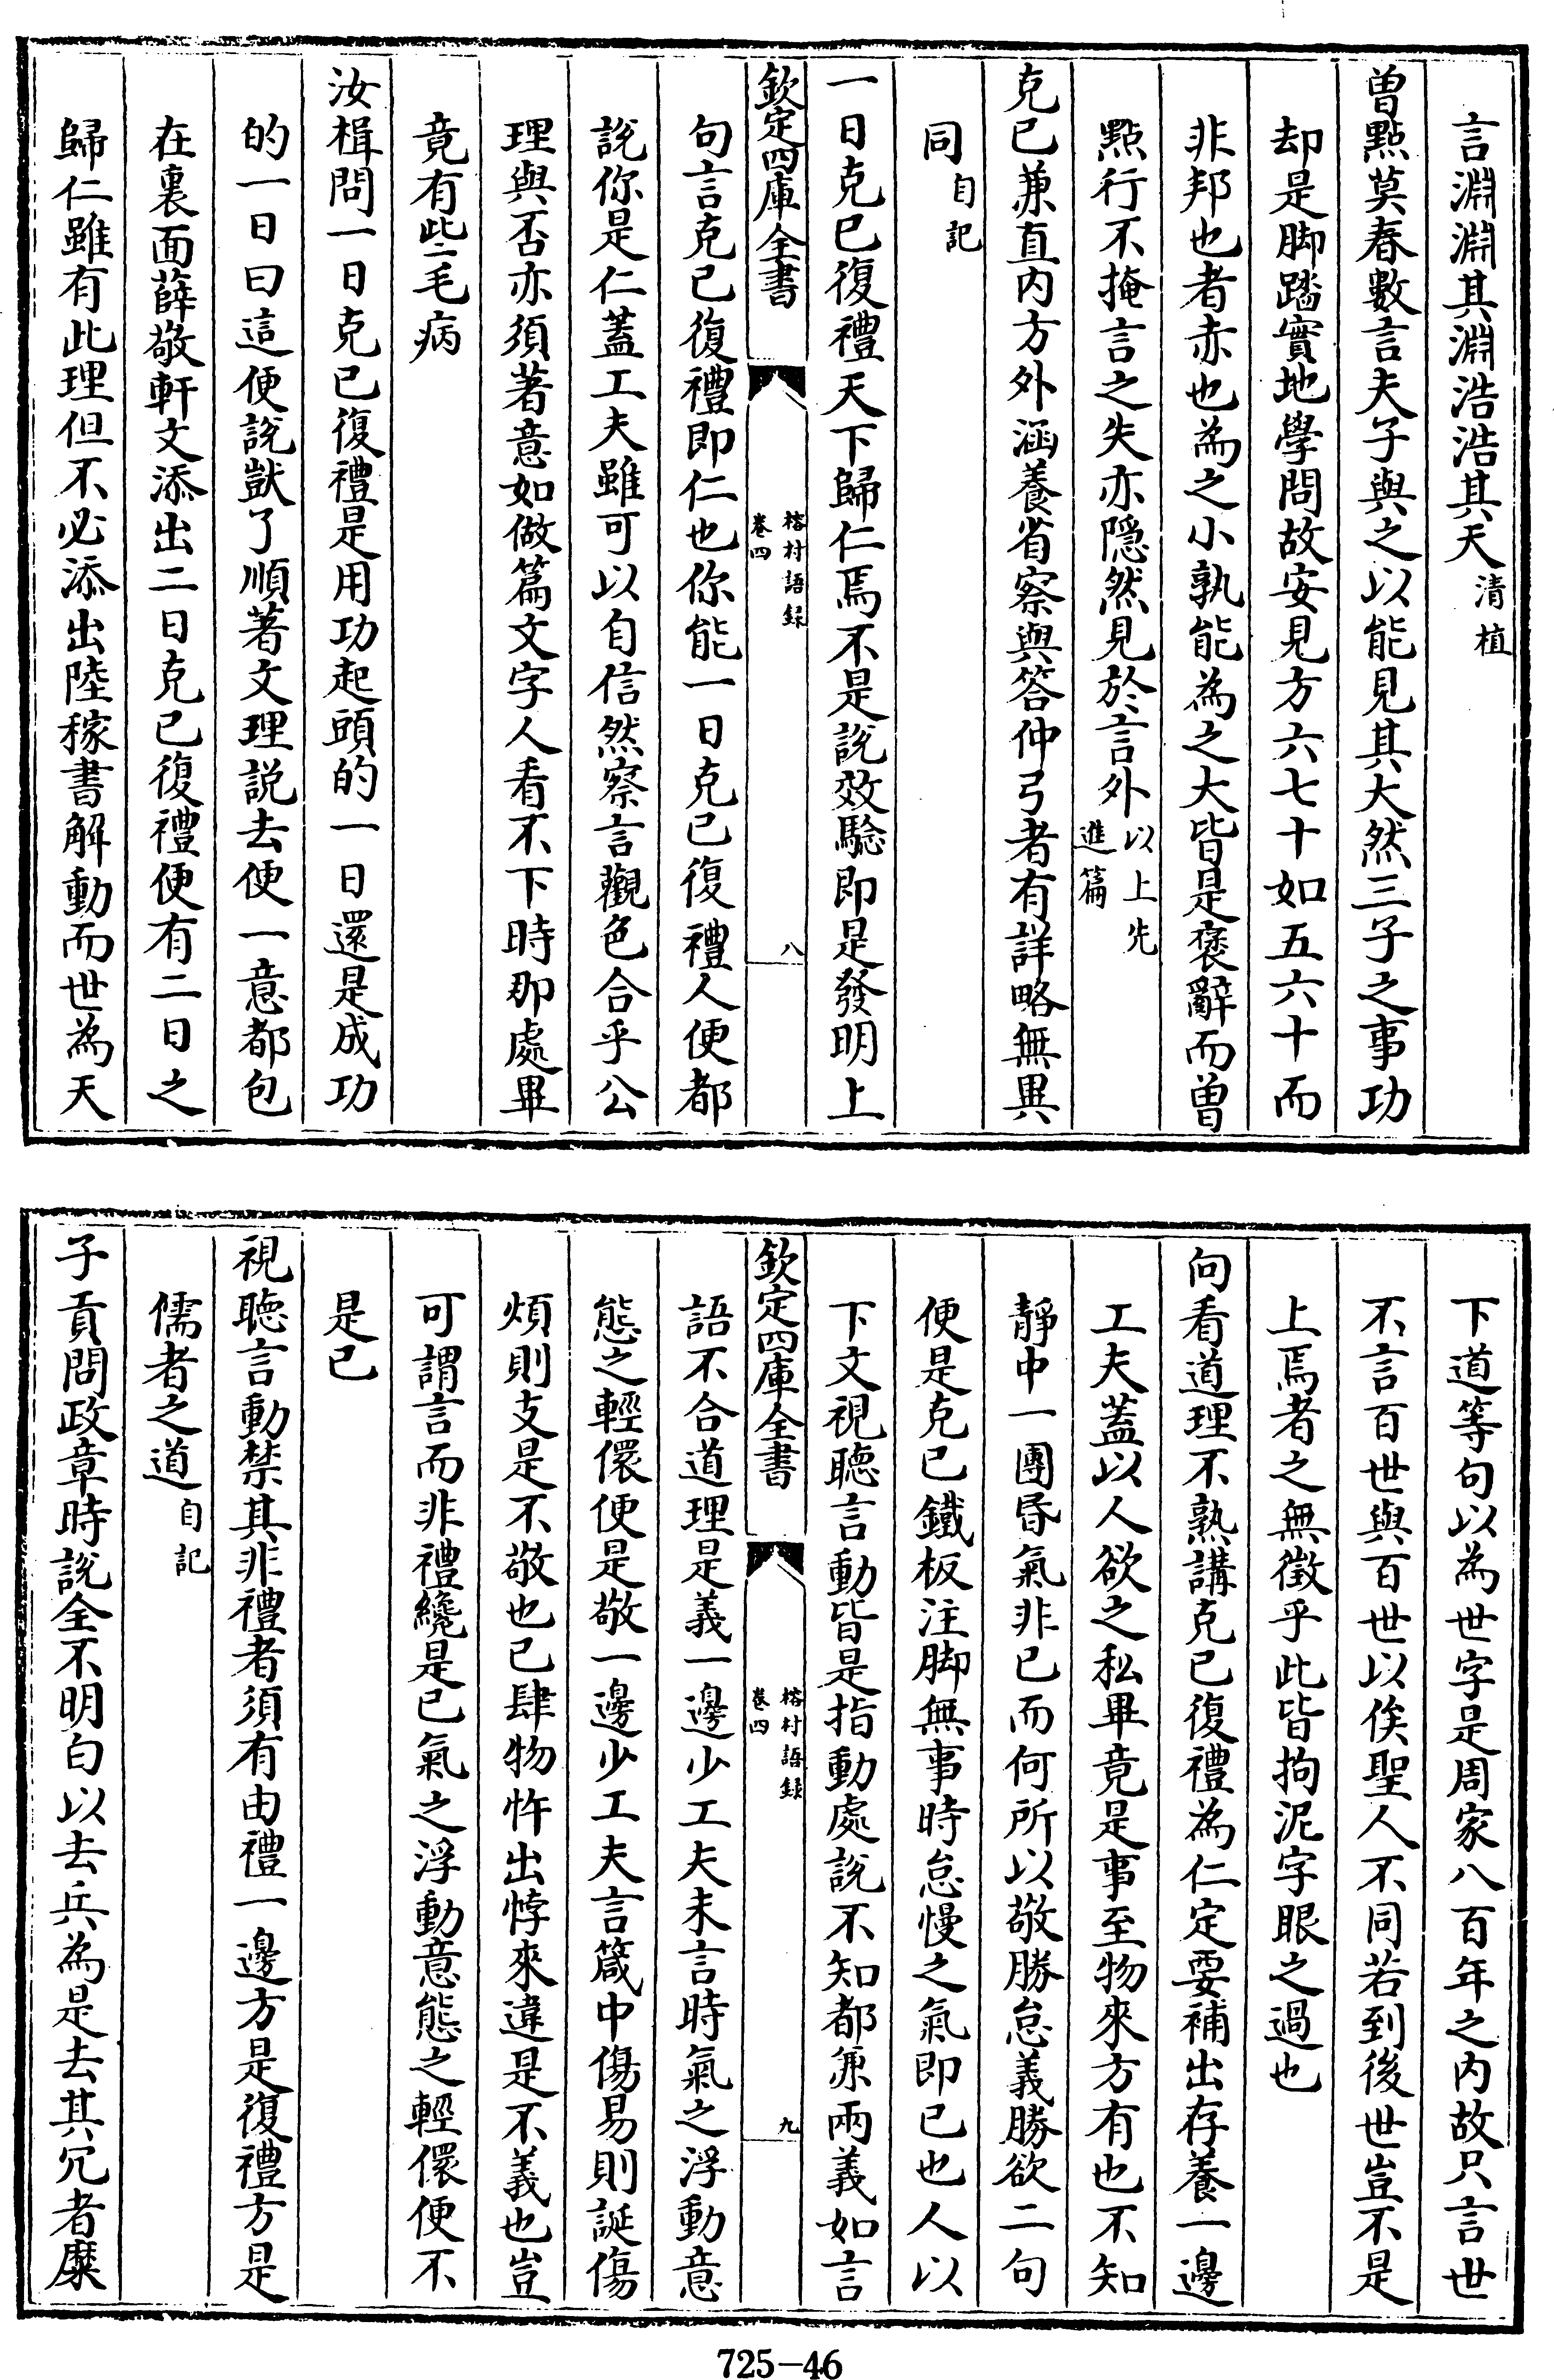 言淵淵其淵浩浩其天清植
曾點莫春數言夫子與之以能見其大然三子之事功
却是脚踏實地學問故安見方六七十如五六十而
非邦也者赤也為之小孰能為之大皆是褒辭而曾
點行不掩言之失亦隠然見於言外以上先
進篇
克已兼直内方外涵養省察與答仲弓者有詳略無異
同自記
一日克已復禮天下歸仁焉不是説效驗即是發明上
欽定四庫全書
榕村語録
卷四
八
句言克已復禮即仁也你能一日克已復禮人便都
說你是仁蓋工夫雖可以自信然察言觀色合乎公
理與否亦須著意如做篇文字人看不下時那處畢
竟有些毛病
汝楫問一日克已復禮是用功起頭的一日還是成功
的一日曰這便説獃了順著文理説去便一意都包
在裏面薛敬軒文添出二日克已復禮便有二日之
歸仁雖有此理但不必添出陸稼書解動而世為天
下道等句以為世字是周家八百年之内故只言世
不言百世與百世以俟聖人不同若到後世豈不是
上焉者之無徴乎此皆拘泥字眼之過也
向看道理不熟講克已復禮為仁定要補出存養一邊
工夫蓋以人欲之私畢竟是事至物來方有也不知
靜中一團昏氣非已而何所以敬勝怠義勝欲二句
便是克已鐵板注脚無事時怠慢之氣即已也人以
下文視聽言動皆是指動處說不知都兼兩義如言
欽定四庫全書
榕村語録
卷四
九
語不合道理是義一邊少工夫未言時氣之浮動意
態之輕儇便是敬一邊少工夫言箴中傷易則誕傷
煩則支是不敬也已肆物忤出悖來違是不義也豈
可謂言而非禮纔是已氣之浮動意態之輕儇便不
是已
視聽言動禁其非禮者須有由禮一邊方是復禮方是
儒者之道自記
子貢問政章時說全不明白以去兵為是去其冗者糜
725-46